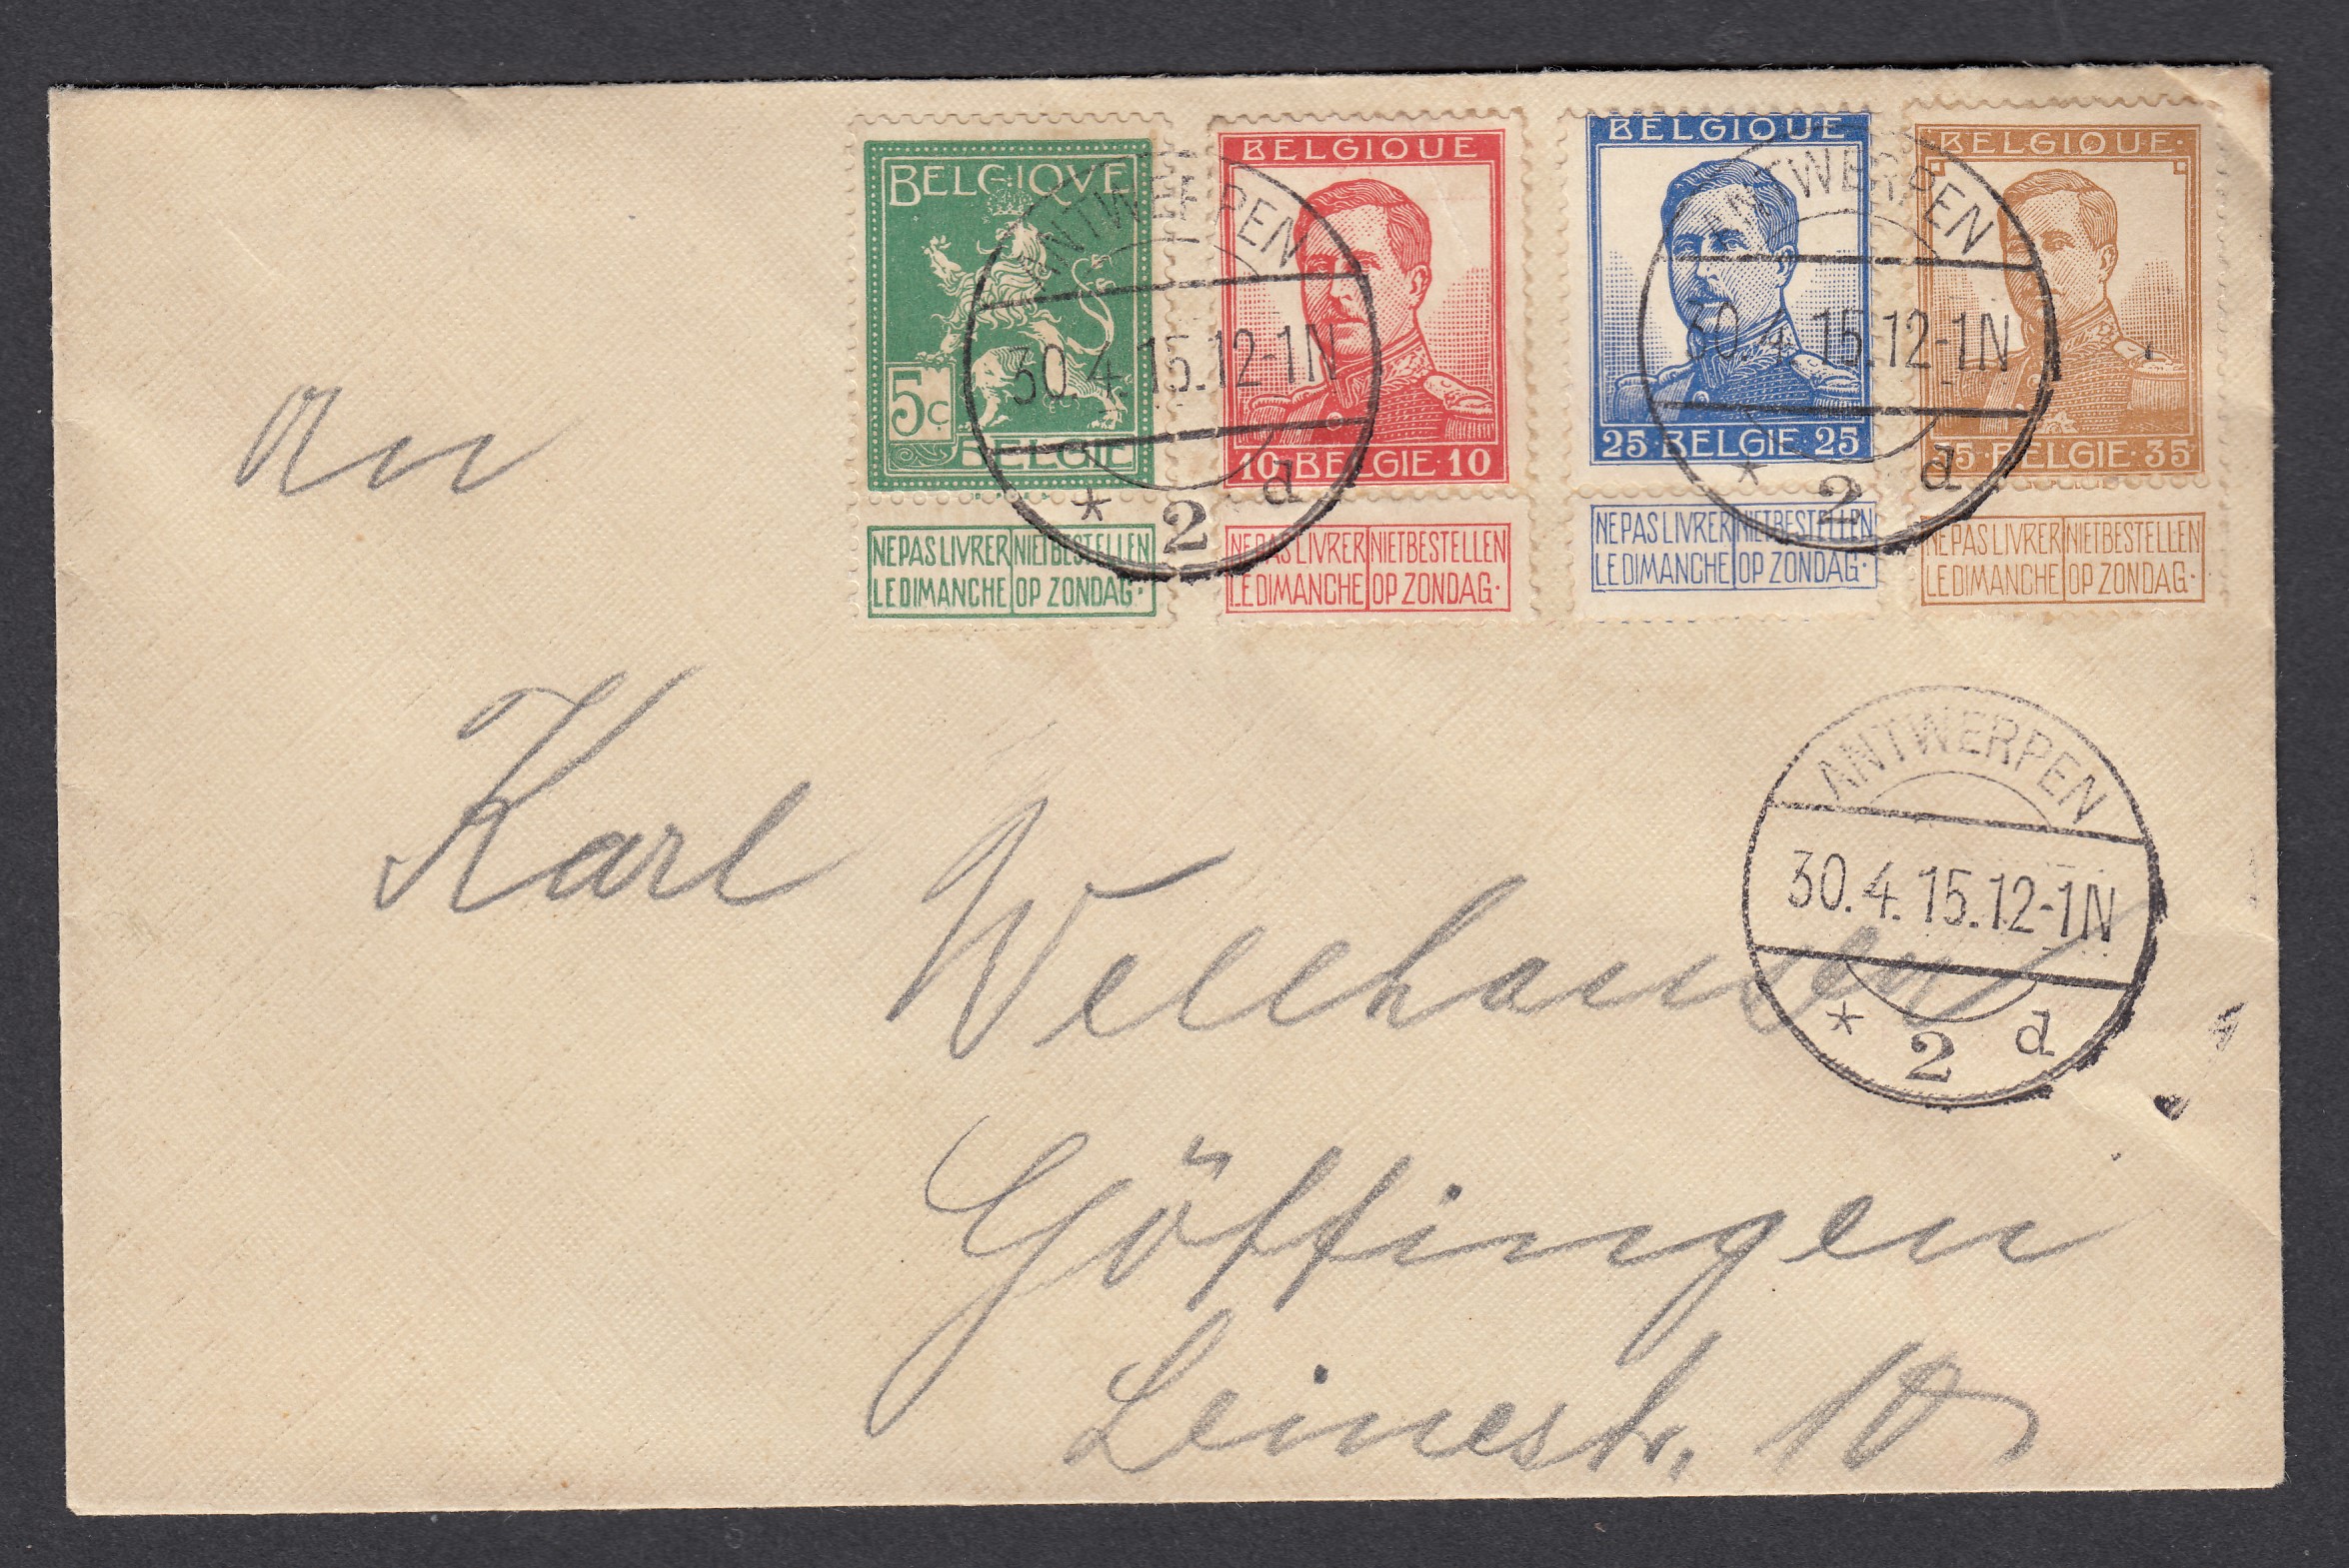 BELGIQVE
5c
BELGIE
NE PAS LIVRER LE DIMANCHE
NIET BESTELLEN OP ZONDAG.
BELGIQUE
10·BELGIE·10
NE PAS LIVRER LE DIMANCHE
NIET BESTELLEN OP ZONDAG.
BELGIQUE
25·BELGIE·25
NE PAS LIVRER LE DIMANCHE
NIET BESTELLEN OP ZONDAG.
BELGIQUE
35·BELGIE·35
NE PAS LIVRER LE DIMANCHE
NIET BESTELLEN OP ZONDAG.
ANTWERPEN
30.4.15.12-1N
* 2 d
ANTWERPEN
30.4.15.12-1N
* 2 d
An
Karl
Wellhausen
ANTWERPEN
30.4.15.12-1N
* 2 d
Göttingen
Leinestr. 10